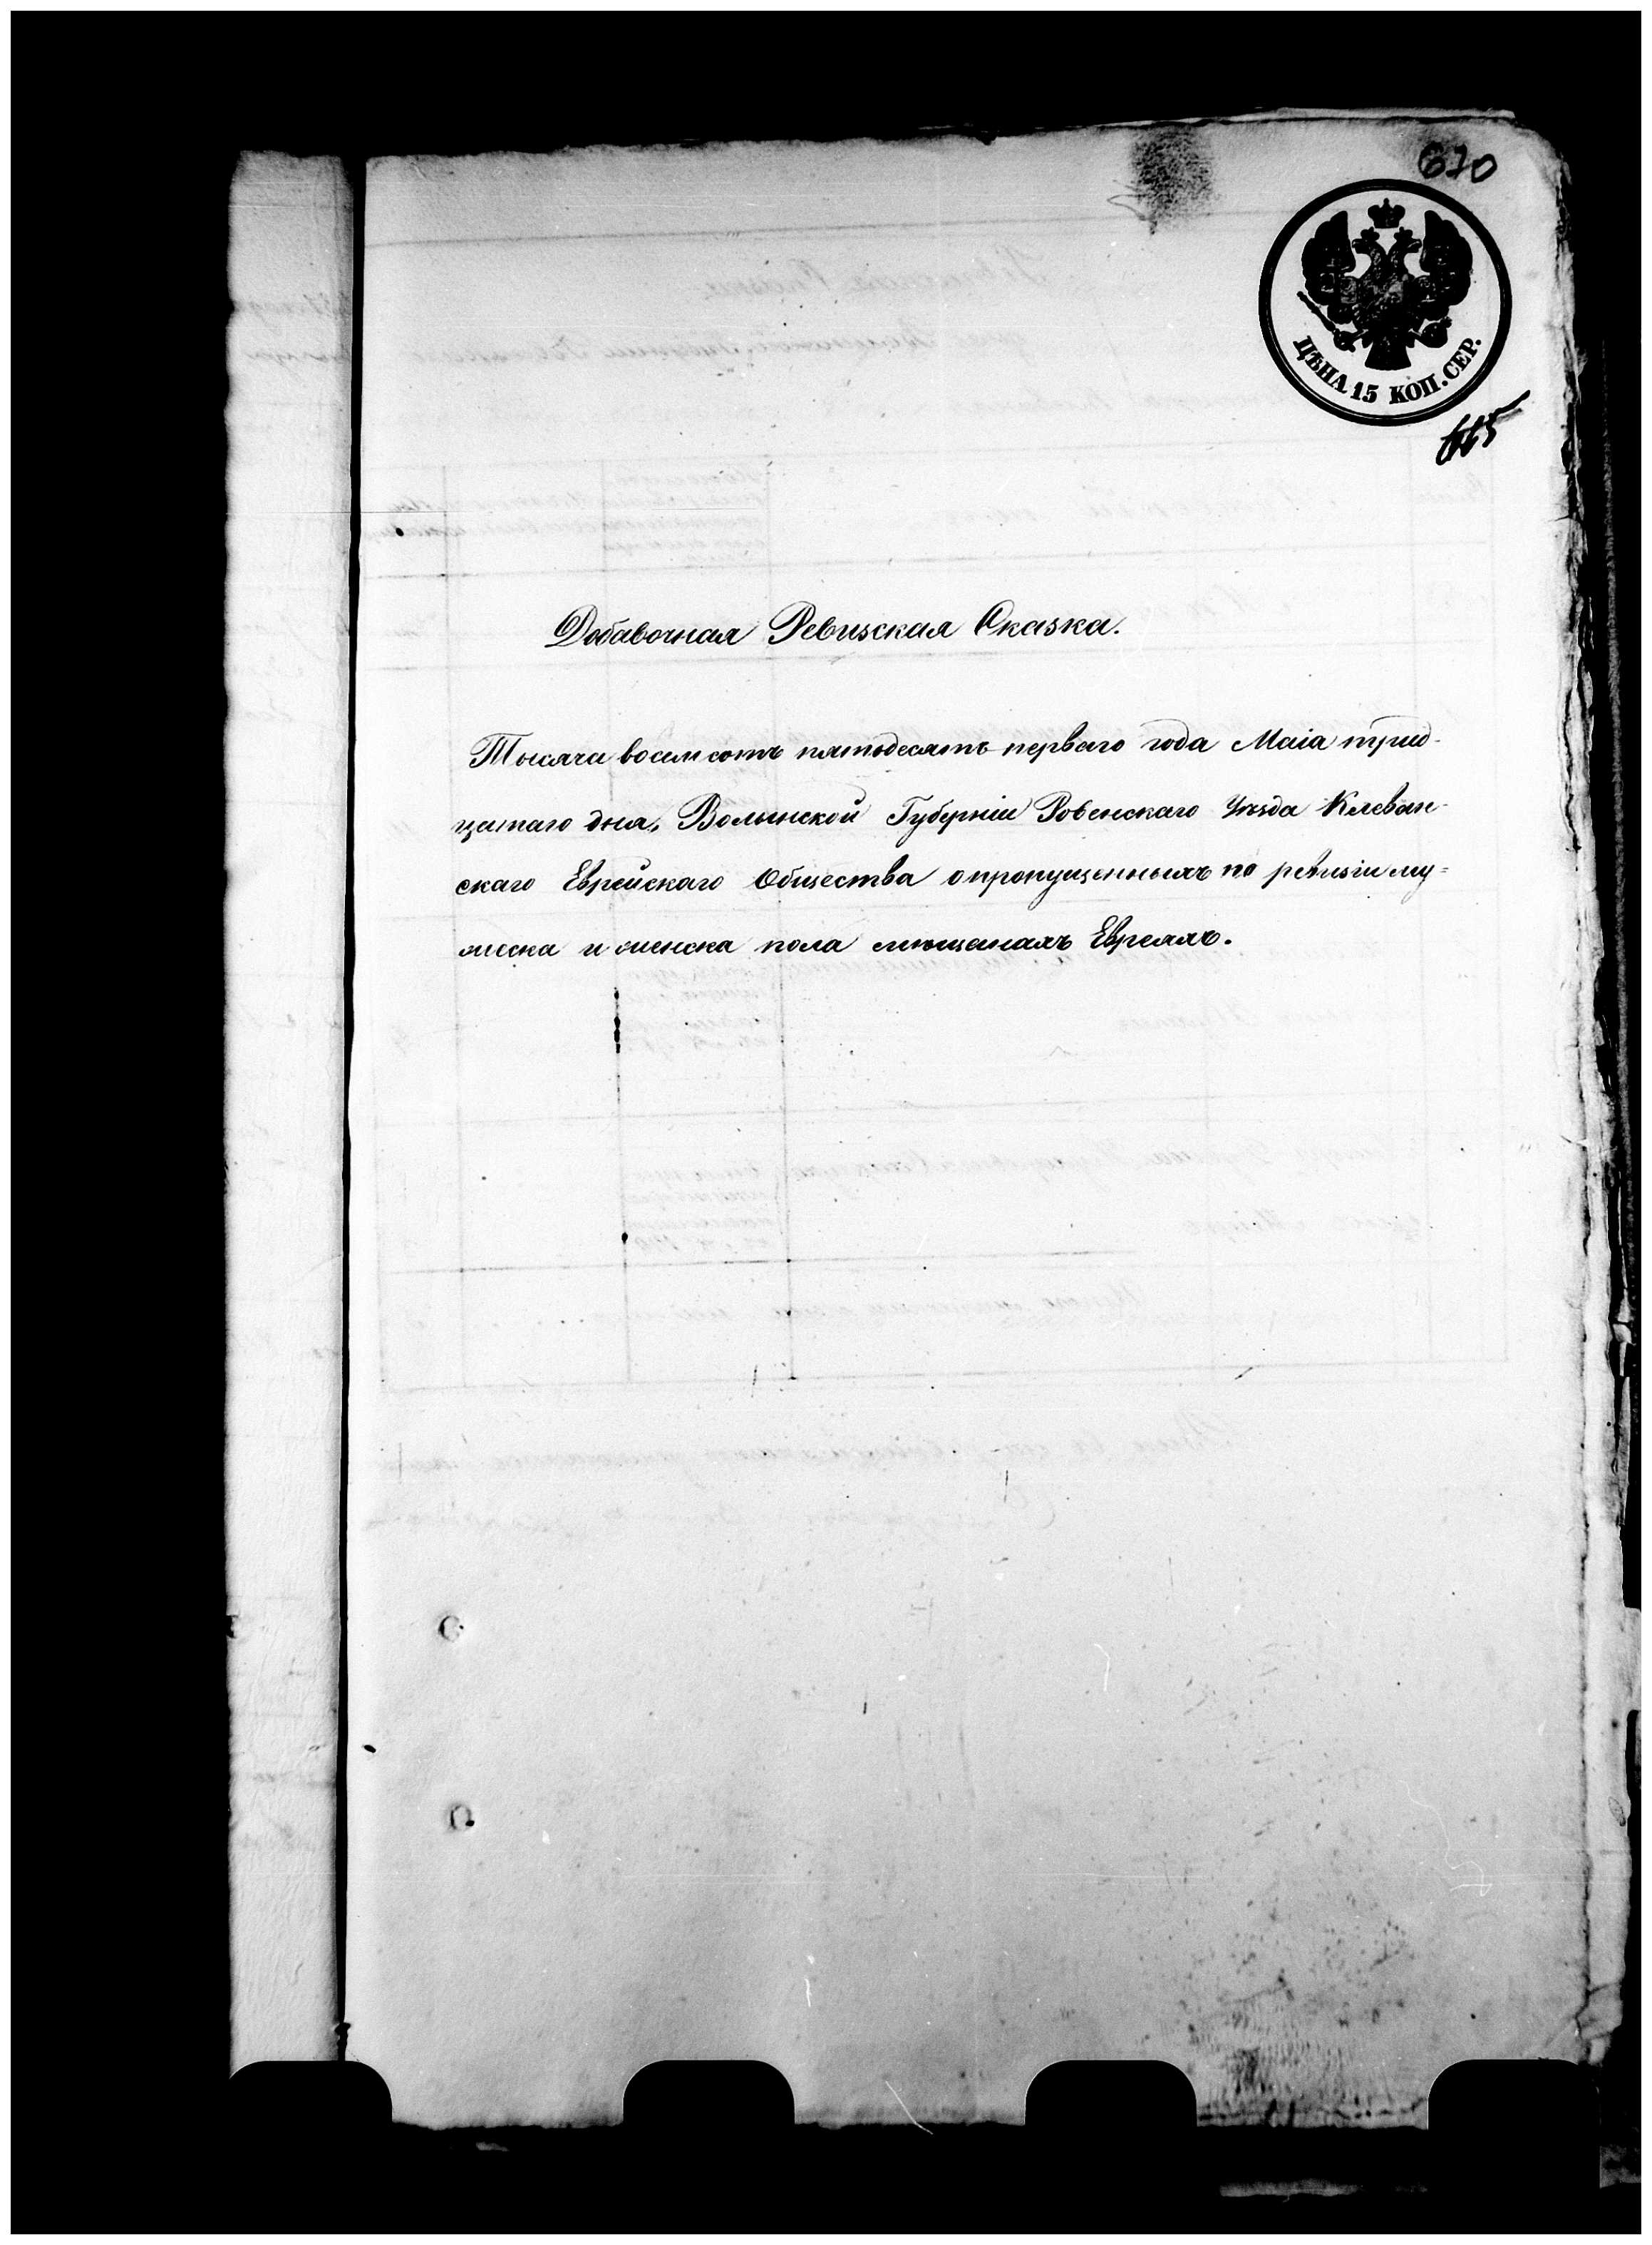 670
ЦѢНА 15 КОП. СЕР.
Добавочная Ревизская Сказка.
Тысяча восемсотъ пятьдесятъ перваго года Маія трид-
цатаго дня, Волынской Губерніи Ровенскаго Уѣзда Клеван-
скаго Еврейскаго Общества о пропущенныхъ по ревизіи му-
жеска и женска пола мѣщанахъ Евреяхъ.